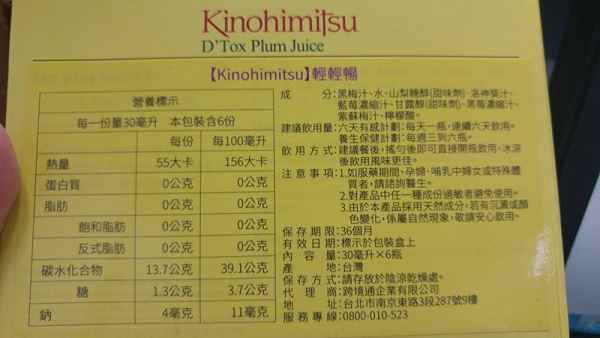 Kinohimitsu
D'Tox Plum Juice
【Kinohimitsu】輕輕暢
營養標示
每一份量30毫升 本包裝含6份
每份 每100毫升
熱量 55大卡 156大卡
蛋白質 0公克 0公克
脂肪 0公克 0公克
飽和脂肪 0公克 0公克
反式脂肪 0公克 0公克
碳水化合物 13.7公克 39.1公克
糖 1.3公克 3.7公克
鈉 4毫克 11毫克
成 分:黑梅汁、水、山梨糖醇(甜味劑)、洛神葵汁、
藍莓濃縮汁、甘露醇(甜味劑)、黑莓濃縮汁、
紫蘇梅汁、檸檬酸。
建議飲用量:六天有感計劃:每天一瓶,連續六天飲用。
養生保健計劃:每週三到六瓶。
飲用方式:建議餐後,搖勻後即可直接開瓶飲用,冰涼
後飲用風味更佳。
注意事項:1.如服藥期間、孕婦、哺乳中婦女或特殊體
質者,請諮詢醫生。
2.對產品中任一種成份過敏者避免使用。
3.由於本產品採用天然成分,若有沉澱或顏
色變化,係屬自然現象,敬請安心飲用。
保存期限:36個月
有效日期:標示於包裝盒上
內容量:30毫升×6瓶
產 地:台灣
保存方式:請存放於陰涼乾燥處。
代理商:跨境通企業有限公司
地 址:台北市南京東路3段287號9樓
服務專線:0800-010-523